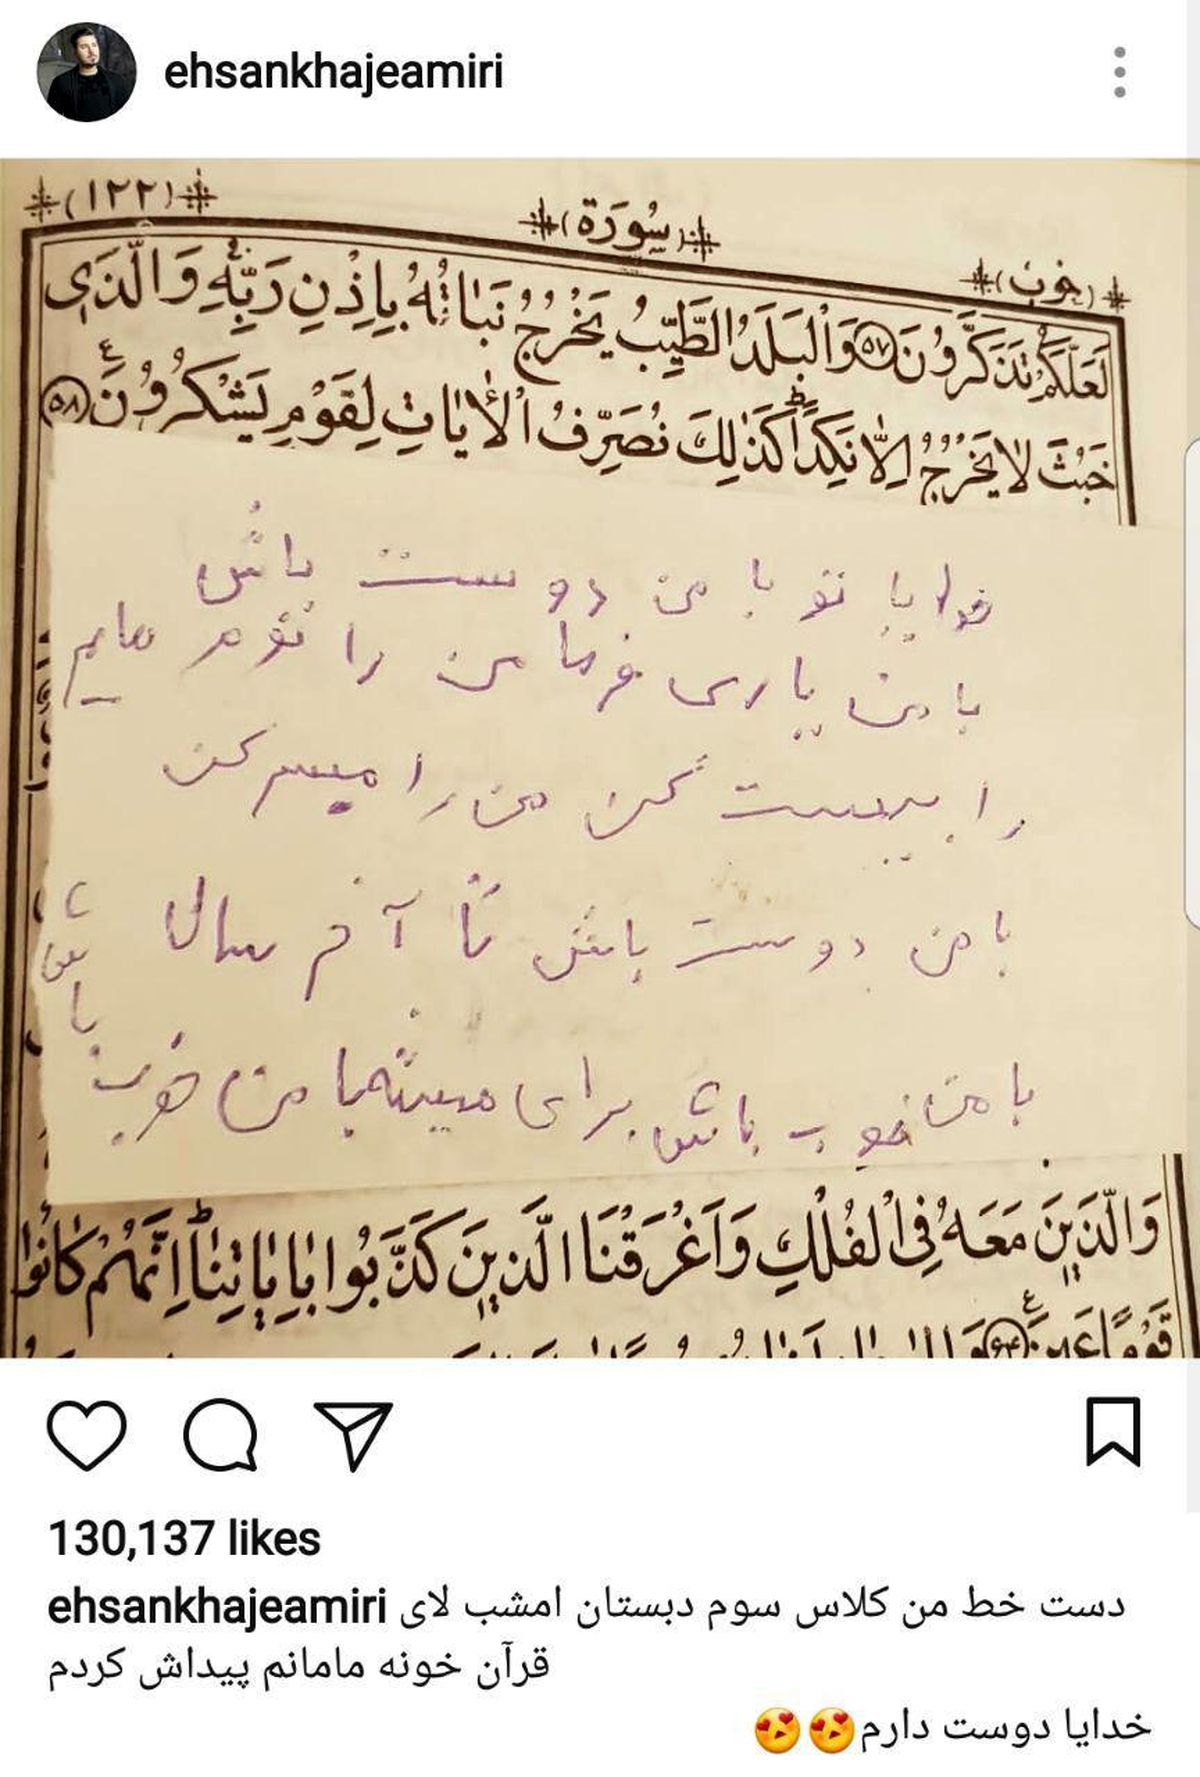 ehsankhajeamiri
(۱۲۲)
(سُورَة)
لَعَلَّكُمْ تَذَكَّرُونَ ۵۷ وَالْبَلَدُ الطَّيِّبُ يَخْرُجُ نَبَاتُهُ بِاِذْنِ رَبِّهِ وَالَّذِی
خَبُثَ لَا يَخْرُجُ اِلَّا نَكِدًا كَذٰلِكَ نُصَرِّفُ الْاٰيَاتِ لِقَوْمٍ يَشْكُرُونَ ۵۸
خدایا تو با من دوست باش
با من یاری فرما من را نوم هایم
را بیست کن من را میسر کن
با من دوست باش تا آخر سال
با من خوب باش برای همیشه با من خوب
باش
وَالَّذِينَ مَعَهُ فِی الْفُلْكِ وَاَغْرَقْنَا الَّذِينَ كَذَّبُوا بِاٰيَاتِنَا اِنَّهُمْ كَانُوا
قَوْمًا عَمِينَ
130,137 likes
ehsankhajeamiri دست خط من کلاس سوم دبستان امشب لای
قرآن خونه مامانم پیداش کردم
خدایا دوست دارم😍😍